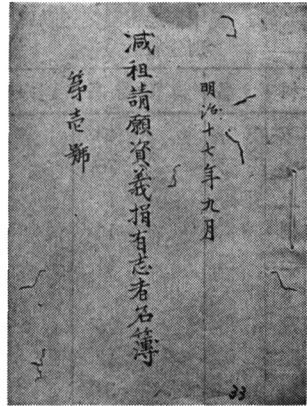 明治十七年九月
減租請願資義捐有志者名簿
第壱號
33